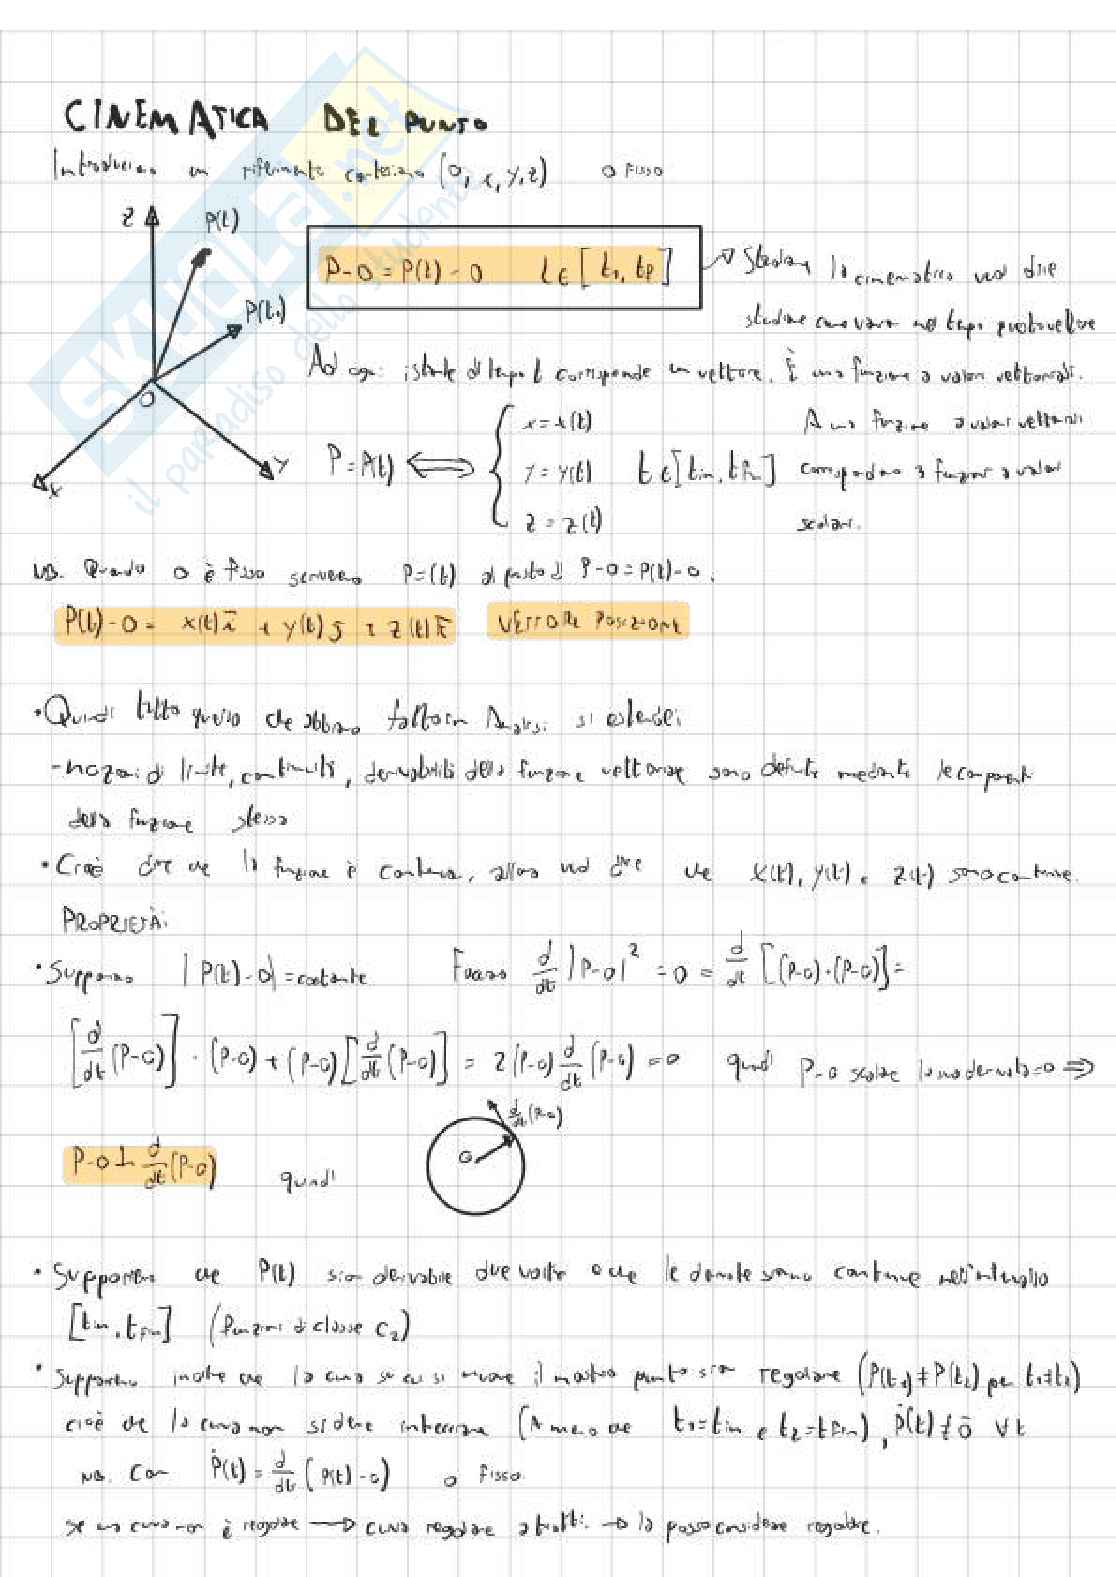 CINEMATICA DEL PUNTO
Introduciamo un riferimento cartesiano (O, x, y, z) O FISSO
z P(t)
P(t₁)
O
x
y
P-O = P(t)-O t ∈ [t₁, tf] → Studiare la cinematica vuol dire
studiare come varia nel tempo questo vettore
Ad ogni istante di tempo t corrisponde un vettore. È una funzione a valori vettoriali.
P = P(t) ⟺ { x = x(t) y = y(t) z = z(t) t ∈ [tin, tfin]
A una funzione a valori vettoriali
corrispondono 3 funzioni a valori
scalari.
NB. Quando O è fisso scriveremo P=(t) al posto di P-O = P(t)-O.
P(t)-O = x(t)i + y(t)j + z(t)k VETTORE POSIZIONE
• Quindi tutto quello che abbiamo fatto in Analisi si estende:
- nozioni di limite, continuità, derivabilità della funzione vettoriale sono definite mediante le componenti
della funzione stessa
• Cioè dire che la funzione è continua, allora vuol dire che x(t), y(t) e z(t) sono continue.
PROPRIETÀ:
• Supponiamo |P(t)-O| = costante Facciamo d/dt |P-O|² = 0 = d/dt [(P-O)·(P-O)] =
[d/dt (P-O)] · (P-O) + (P-O) [d/dt (P-O)] = 2 (P-O) d/dt (P-O) = 0 quindi P-O scalare la sua derivata = 0 ⇒
P-O ⊥ d/dt (P-O) quindi
O d/dt (P-O)
• Supponiamo che P(t) sia derivabile due volte e che le derivate siano continue nell'intervallo
[tin, tfin] (funzioni di classe C₂)
• Supponiamo inoltre che la curva su cui si muove il nostro punto sia regolare (P(t₁) ≠ P(t₂) per t₁≠t₂)
cioè che la curva non si deve intersecare (A meno che t₁=tin e t₂=tfin), Ṗ(t) ≠ 0 ∀t
NB. Con Ṗ(t) = d/dt (P(t)-O) O fisso.
Se una curva non è regolare → curva regolare a tratti → la posso considerare regolare.
SKUOLA.net
il paradiso dello studente